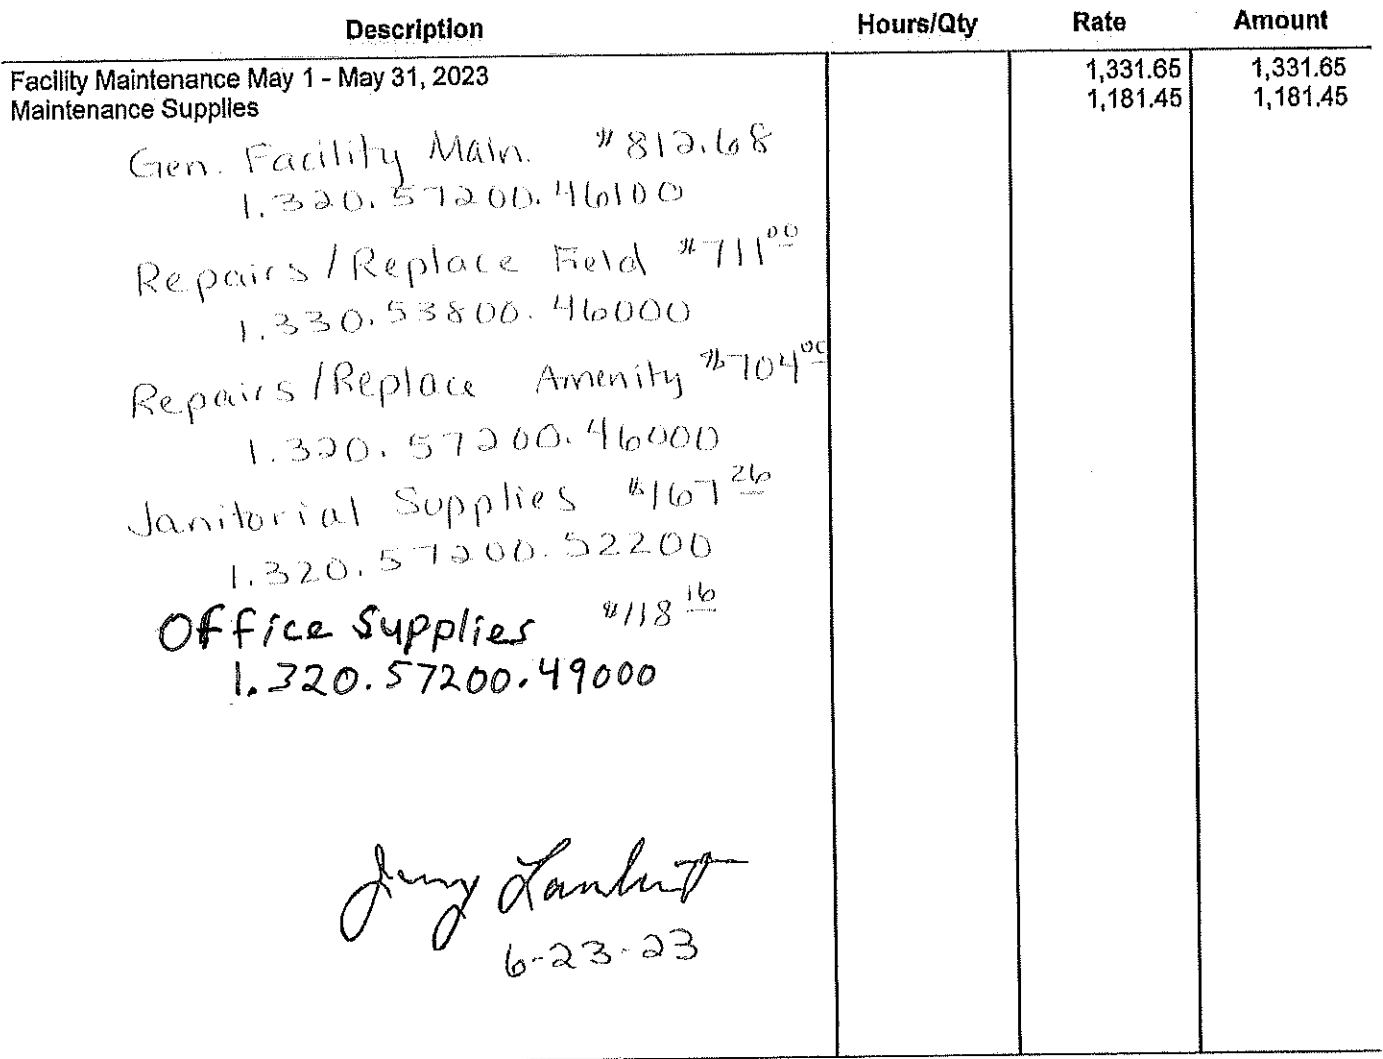 Description Hours/Qty Rate Amount
Facility Maintenance May 1 - May 31, 2023 1,331.65 1,331.65
Maintenance Supplies 1,181.45 1,181.45
Gen. Facility Main. $812.68
1.320.57200.46100
Repairs/Replace Field $711 00
1.330.53800.46000
Repairs/Replace Amenity $704 00
1.320.57200.46000
Janitorial Supplies $167 26
1.320.57200.52200
Office Supplies $118 16
1.320.57200.49000
Jerry Lambert
6-23-23